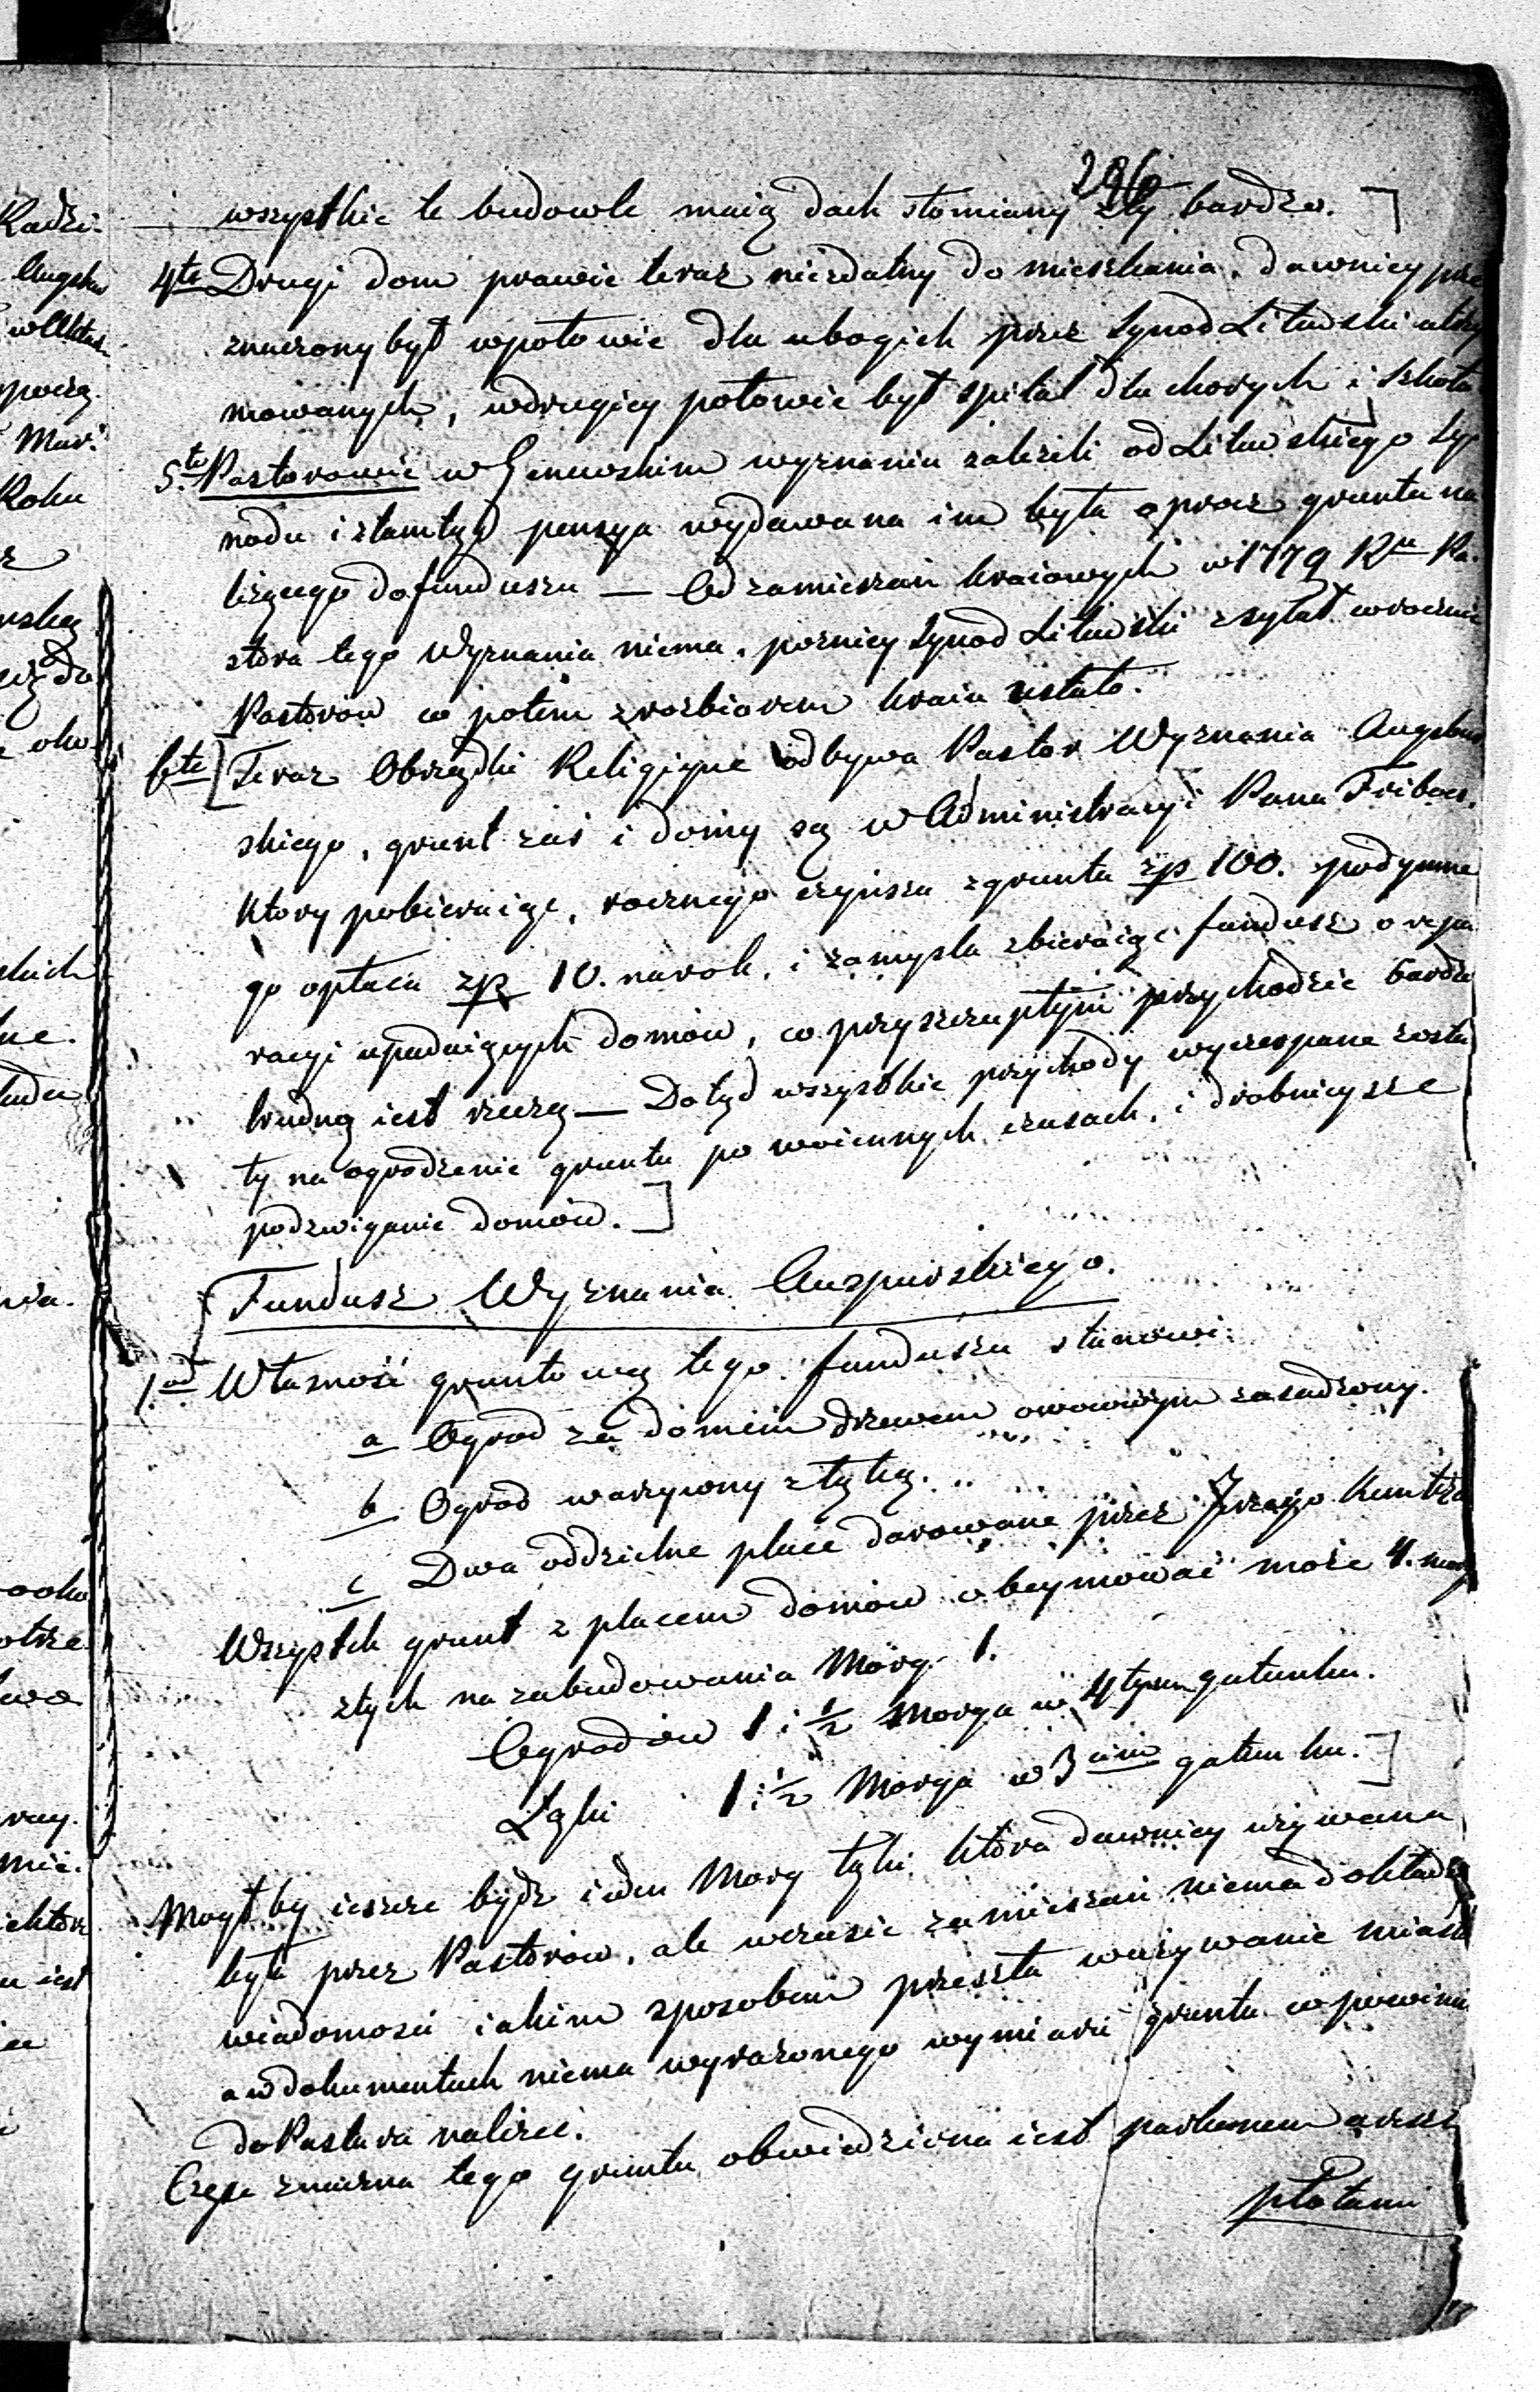 296
wszystkie te budowle maią dach słomiany zły bardzo.
4te Drugi dom prawie teraz niezdatny do mieszkania, dawniey prze
znaczony był wpołowie dla ubogich przez Synod Litewski utrzy
mowanych, wdrugiey połowie był szpital dla chorych i szkoła
5te Pastorowie w Genewskim wyznaniu zależeli od Litewskiego Sy
nodu i ztamtąd pensya wydawana im była oprocz gruntu na
leżącego dofunduszu — Od zamieszań kraiowych w 1779 Ru Pa-
stora tego Wyznania niema, pozniey Synod Litewski zsyłał corocznie
Pastorow co potem zrozbiorem kraiu ustało.
6te [Teraz Obrządki Religiyne odbywa Pastor Wyznania Augsbur
skiego, grunt zaś i domy są w Administracyi Pana
ktory pobieraiąc, rocznego czynszu zgruntu zp 100. podymne
go opłaca zp 10. narok, i zamysla zbieraiąc fundusz o repa
racyi upadaiących domow, co przyszczupłym przychodzie bardzo
trudną iest rzeczą — Dotąd wszystkie przychody wyczerpane zosta
ły na ogrodzenie gruntu po woiennych czasach, i drobnieysze
podzwiganie domow.]
[Fundusz Wyznania Auspurskiego.
1od Własność gruntową tego funduszu stanowi:
a Ogrod za domem drzewem owocowym zasadzony.
b Ogrod warzywny złąką.
c Dwa oddzielne place darowane przez Jerzego
Wszystek grunt z placem domow obeymować może 4. morg
ztych na zabudowania Morg 1.
Ogrodow 1 i ½ Morga w 4tym gatunku.
Łąki 1 i ½ Morga w 3cim gatunku.]
Mogł by ieszcze bydz ieden Morg łąki ktora dawniey używana
była przez Pastorow, ale wczasie zamieszań niema dokład
wiadomosci iakim sposobem przeszła wużywanie miasta
a w dokumentach niema wyrażonego wymiaru gruntu co powinien
do Pastora należeć.
Częsc znaczna tego gruntu obwiedziona iest parkanem a reszt
płotami